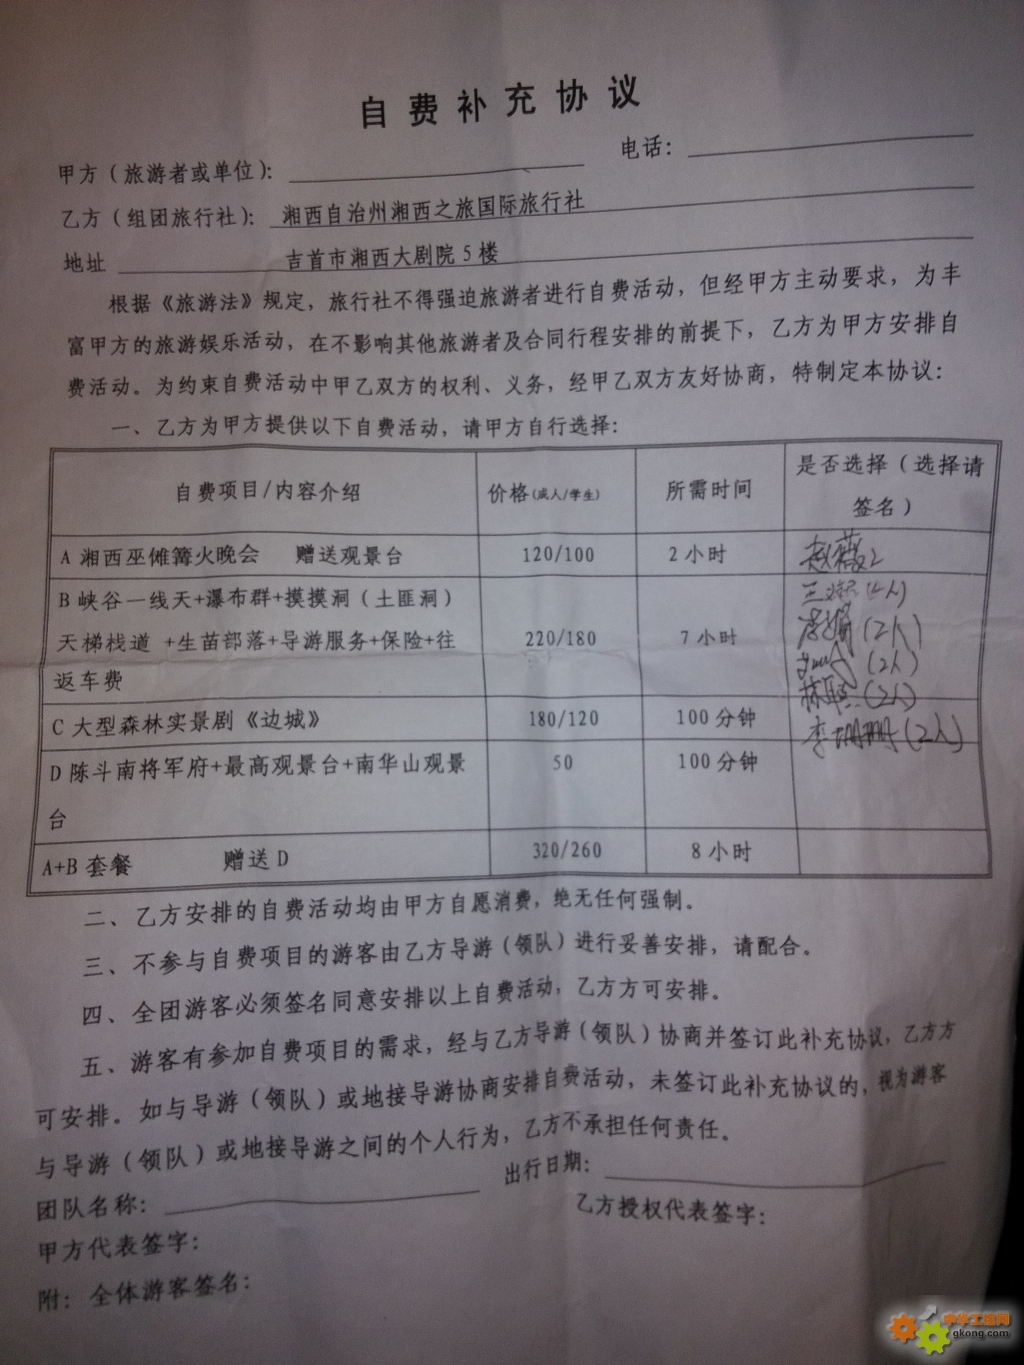 自费补充协议
甲方（旅游者或单位）： 电话：
乙方（组团旅行社）： 湘西自治州湘西之旅国际旅行社
地址 吉首市湘西大剧院5楼
根据《旅游法》规定，旅行社不得强迫旅游者进行自费活动，但经甲方主动要求，为丰
富甲方的旅游娱乐活动，在不影响其他旅游者及合同行程安排的前提下，乙方为甲方安排自
费活动。为约束自费活动中甲乙双方的权利、义务，经甲乙双方友好协商，特制定本协议：
一、乙方为甲方提供以下自费活动，请甲方自行选择：
自费项目/内容介绍 价格（成人/学生） 所需时间 是否选择（选择请
签名）
A 湘西巫傩篝火晚会 赠送观景台 120/100 2小时
B 峡谷一线天+瀑布群+摸摸洞（土匪洞） (2人)
天梯栈道 +生苗部落+导游服务+保险+往 220/180 7小时 (2人)
返车费 (2人)
C 大型森林实景剧《边城》 180/120 100分钟 李珊珊(2人)
D 陈斗南将军府+最高观景台+南华山观景 50 100分钟
台
A+B 套餐 赠送D 320/260 8小时
二、乙方安排的自费活动均由甲方自愿消费，绝无任何强制。
三、不参与自费项目的游客由乙方导游（领队）进行妥善安排，请配合。
四、全团游客必须签名同意安排以上自费活动，乙方方可安排。
五、游客有参加自费项目的需求，经与乙方导游（领队）协商并签订此补充协议，乙方方
可安排。如与导游（领队）或地接导游协商安排自费活动，未签订此补充协议的，视为游客
与导游（领队）或地接导游之间的个人行为，乙方不承担任何责任。
团队名称： 出行日期：
甲方代表签字： 乙方授权代表签字：
附：全体游客签名：
中华工控网
gkong.com